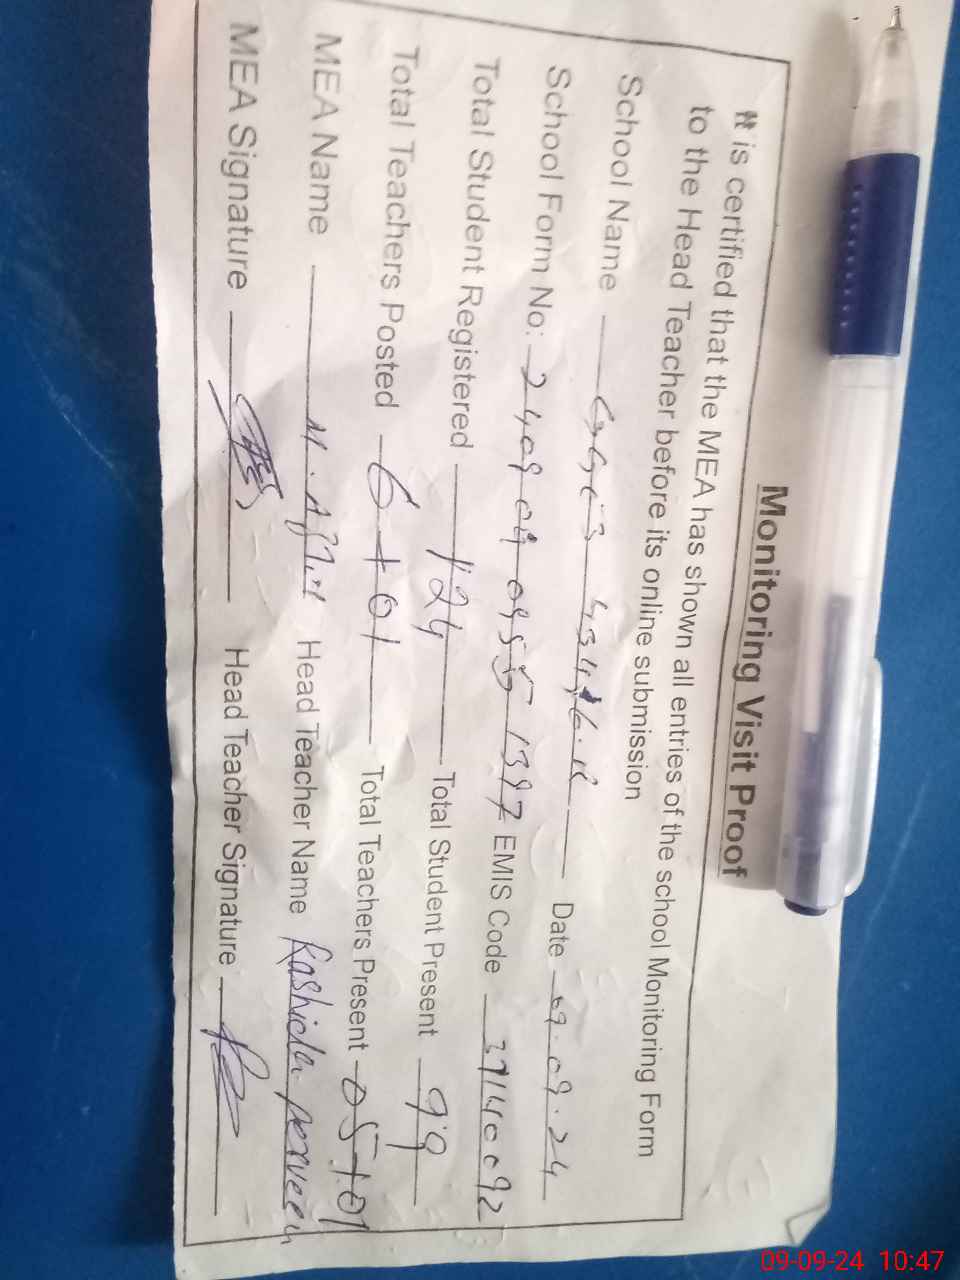 Monitoring Visit Proof
It is certified that the MEA has shown all entries of the school Monitoring Form
to the Head Teacher before its online submission
School Name Date 09.09.24
School Form No: EMIS Code 37140092
Total Student Registered 124 Total Student Present 99
Total Teachers Posted 6+01 Total Teachers Present 05+01
MEA Name Head Teacher Name Rashida Perveen
MEA Signature Head Teacher Signature
09-09-24 10:47